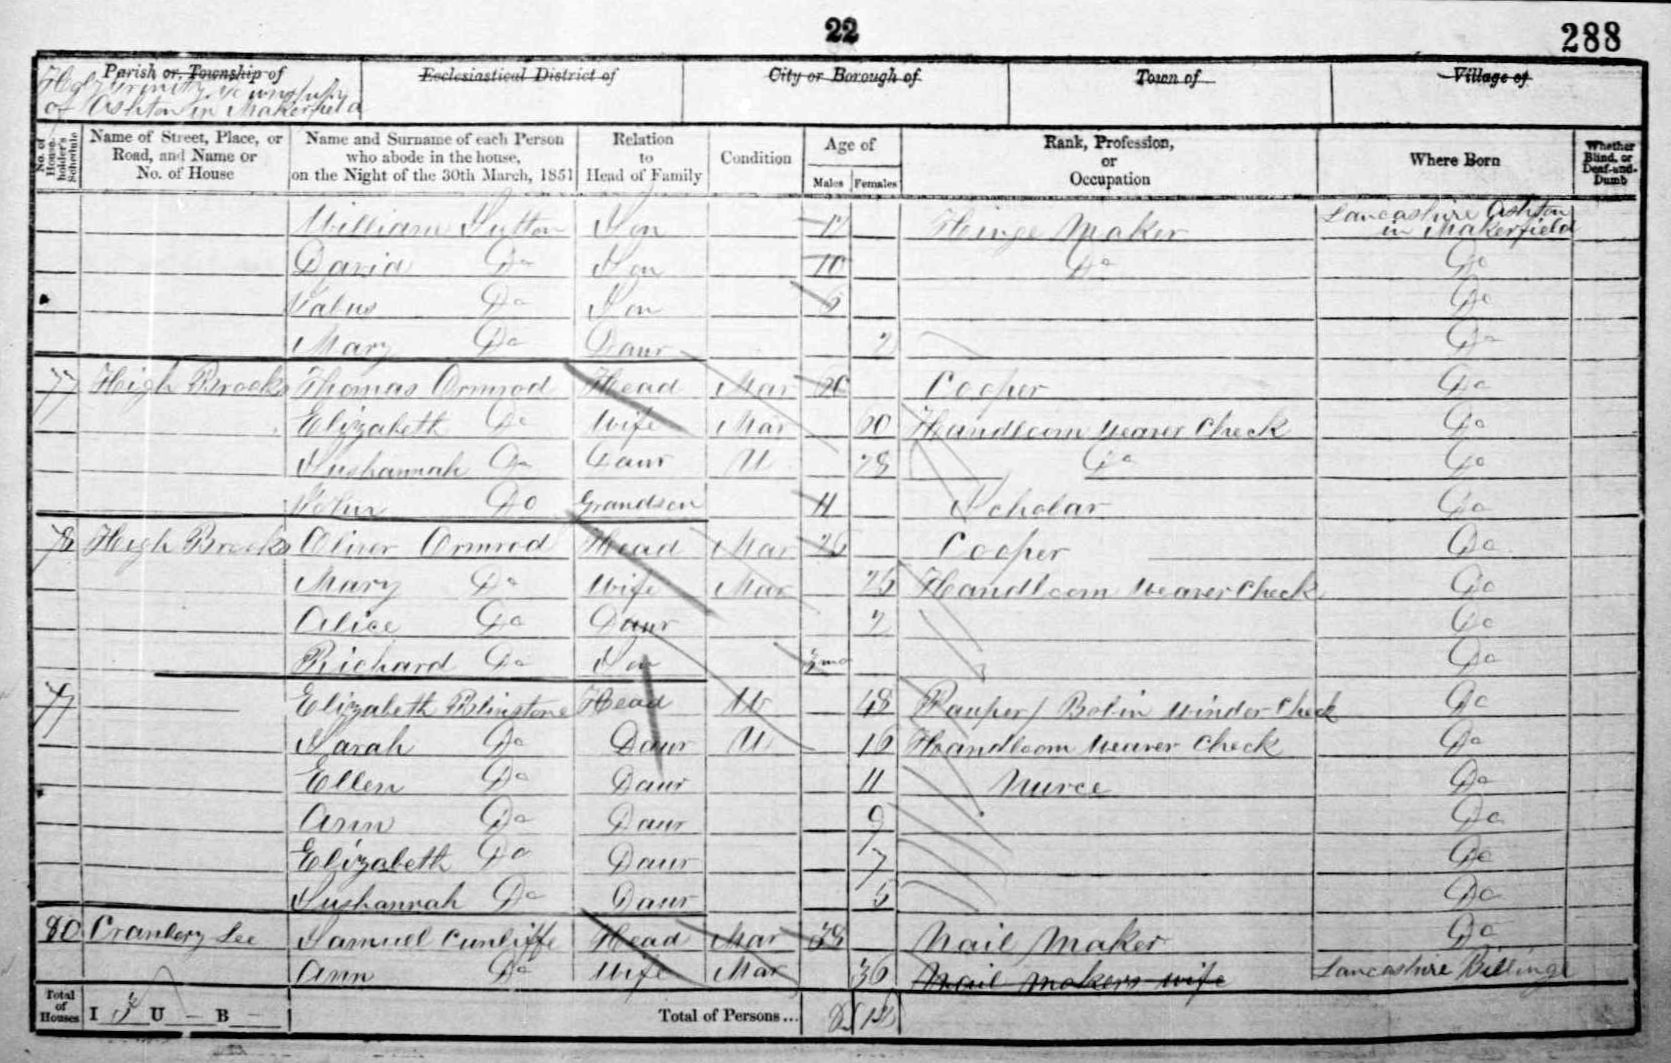 22
288
Parish or Township of
Ecclesiastical District of
City or Borough of
Town of
Village of
Holy Trinity Township
of Ashton in Makerfield
No. of House-holder's Schedule
Name of Street, Place, or Road, and Name or No. of House
Name and Surname of each Person who abode in the house, on the Night of the 30th March, 1851
Relation to Head of Family
Condition
Age of
Males
Females
Rank, Profession, or Occupation
Where Born
Whether Blind, or Deaf-and-Dumb
William Sutton Son Hinge Maker Lancashire Ashton in Makerfield
David Do Son 10 Do Do
Do Son 6 Do
Mary Do Daur 2 Do
77 Heigh Brooks Thomas Ormrod Head Mar Cooper Do
Elizabeth Do Wife Mar 60 Handloom Weaver Check Do
Sushannah Do Daur U 28 Do Do
John Do Grandson 11 Scholar Do
78 Heigh Brooks Oliver Ormrod Head Mar 26 Cooper Do
Mary Do Wife Mar 25 Handloom Weaver Check Do
Alice Do Daur 2 Do
Richard Do Son mo Do
Elizabeth Blinstone Head W 48 Pauper / Bobin Winder Check Do
Sarah Do Daur U 16 Handloom Weaver Check Do
Ellen Do Daur 11 Nurce Do
Ann Do Daur 9 Do
Elizabeth Do Daur 7 Do
Sushannah Do Daur 5 Do
80 Cranbery Lee Samuel Cunliffe Head Mar 38 Nail Maker Do
Ann Do Wife Mar 36 Nail Makers wife Lancashire Billinge
Total of Houses I 3 U - B -
Total of Persons...